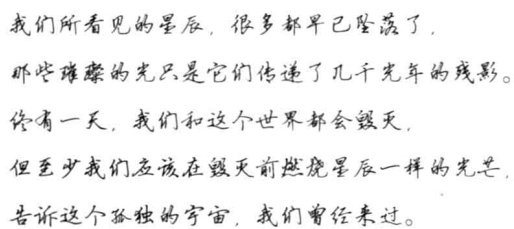 我们所看见的星辰，很多都早已坠落了，
那些璀璨的光只是它们传递了几千光年的残影。
终有一天，我们和这个世界都会毁灭，
但至少我们应该在毁灭前燃烧星辰一样的光芒，
告诉这个孤独的宇宙，我们曾经来过。